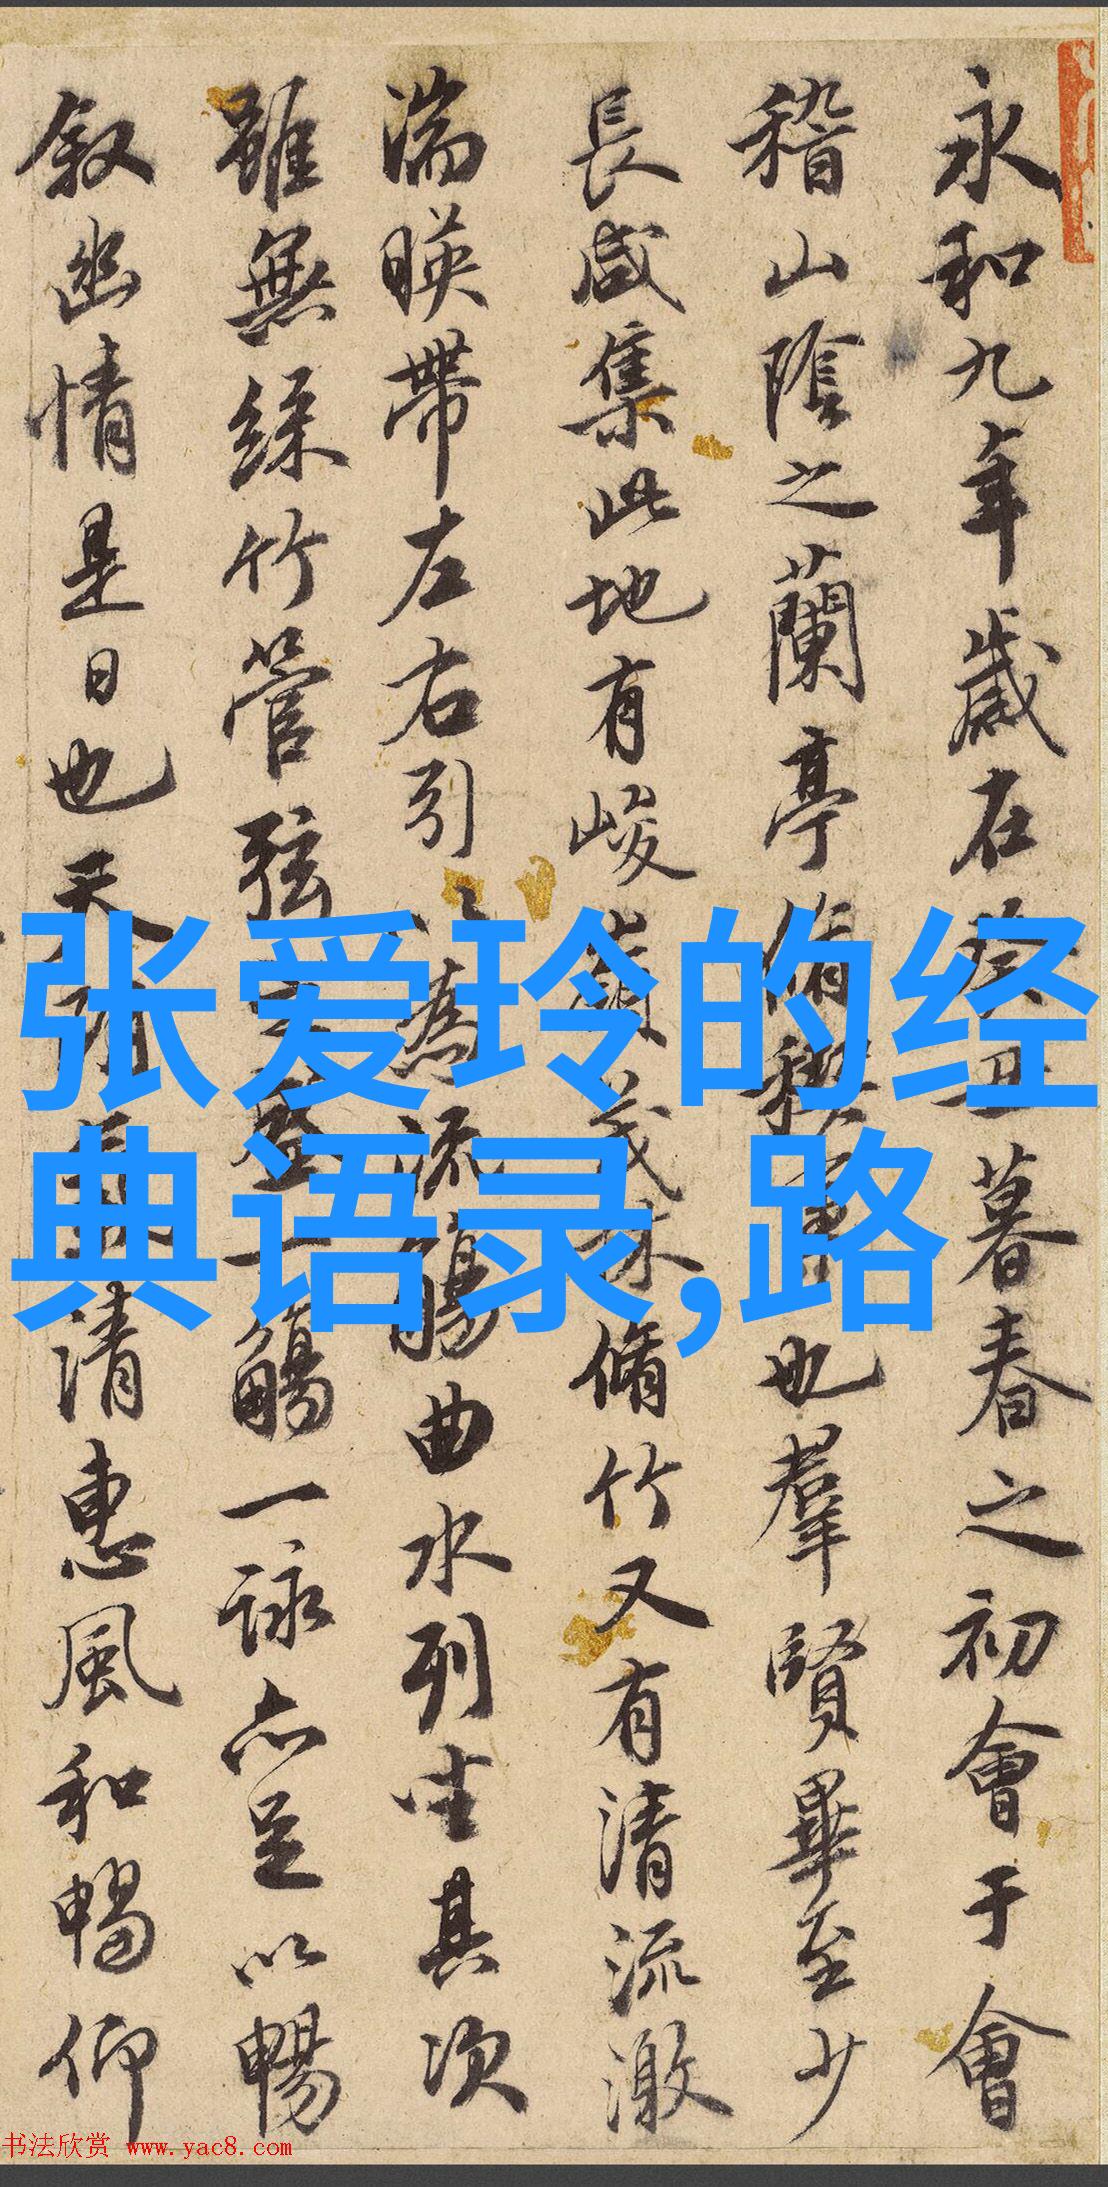 永和九年歲在癸丑暮春之初會于會
稽山陰之蘭亭脩稧事也羣賢畢至少
長咸集此地有峻領茂林脩竹又有清流激
湍暎帶左右引以為流觴曲水列坐其次
雖無絲竹管弦之盛一觴一詠亦足以暢
敘幽情是日也天朗氣清惠風和暢仰
张爱玲的经
典语录,路
书法欣赏 www.yac8.com